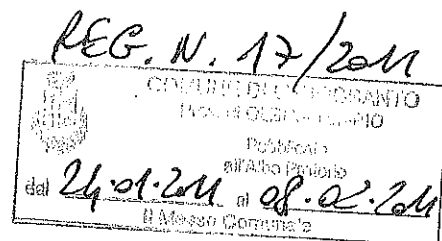 REG. N. 17/2011
COMUNE DI
Pubblicato
all'Albo Pretorio
dal 24.01.2011 al 08.02.2011
Il Messo Comunale